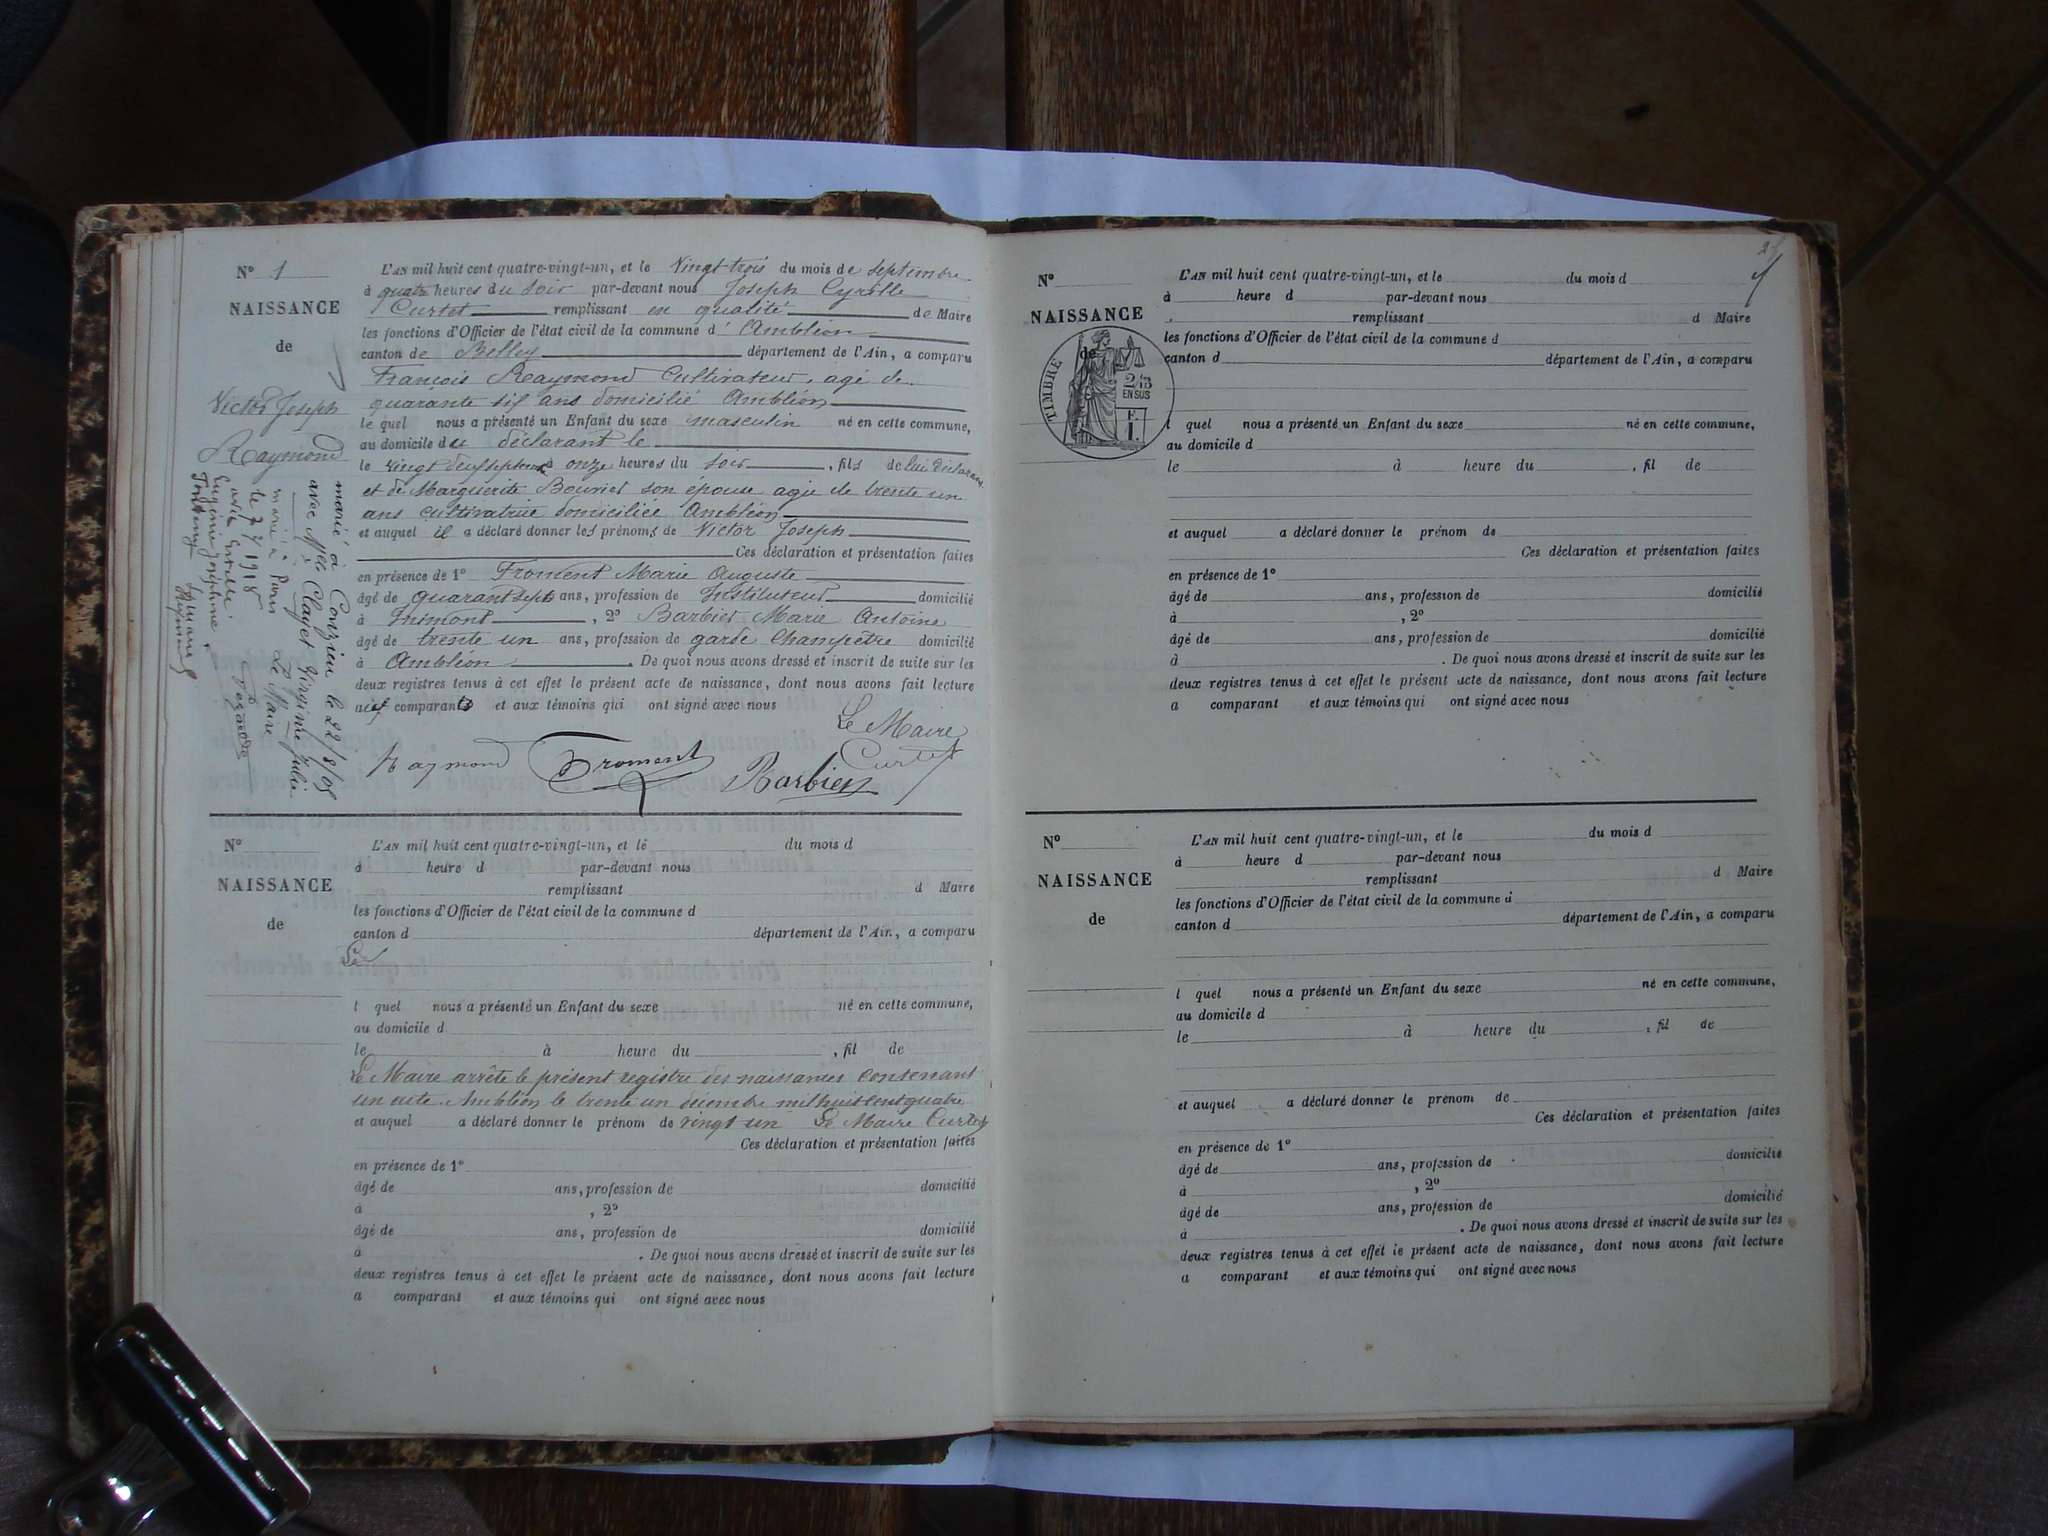 N° 1
NAISSANCE
de
Victor Joseph
Raymond
marié à Conzieu le 22/8/05
avec Mlle Clayet Virginie Julie
Le Maire
marié à Paris
le 7/7/1918
avec
Eugénie Joséphine
L'AN mil huit cent quatre-vingt-un, et le Vingt-trois du mois de septembre
à quatre heures du soir par-devant nous Joseph Cyrille
Curtet remplissant en qualité de Maire
les fonctions d'Officier de l'état civil de la commune d' Ambléon
canton de Belley département de l'Ain, a comparu
François Raymond Cultivateur, agé de
quarante six ans domicilié Ambléon
le quel nous a présenté un Enfant du sexe masculin né en cette commune,
au domicile du déclarant le
le vingt deux septembre à onze heures du soir , fils de lui déclarant
et de Marguerite son épouse agée de trente un
ans cultivatrice domiciliée Ambléon
et auquel il a déclaré donner les prénoms de Victor Joseph
Ces déclaration et présentation faites
en présence de 1° Froment Marie Auguste
âgé de quarant sept ans, profession de Instituteur domicilié
à Inimont , 2° Barbier Marie Antoine
âgé de trente un ans, profession de garde Champêtre domicilié
à Ambléon . De quoi nous avons dressé et inscrit de suite sur les
deux registres tenus à cet effet le présent acte de naissance, dont nous avons fait lecture
aux comparants et aux témoins qui ont signé avec nous
Le Maire
Raymond Froment Barbier Curtet
N°
NAISSANCE
de
L'AN mil huit cent quatre-vingt-un, et le du mois d
à heure d par-devant nous
remplissant d Maire
les fonctions d'Officier de l'état civil de la commune d
canton d département de l'Ain, a comparu
l quel nous a présenté un Enfant du sexe né en cette commune,
au domicile d
le à heure du , fil de
Le Maire arrête le présent registre des naissances contenant
un acte Ambléon le trente un décembre mil huit cent quatre
et auquel a déclaré donner le prénom de vingt un Le Maire Curtet
Ces déclaration et présentation faites
en présence de 1°
âgé de ans, profession de domicilié
à , 2°
âgé de ans, profession de domicilié
à . De quoi nous avons dressé et inscrit de suite sur les
deux registres tenus à cet effet le présent acte de naissance, dont nous avons fait lecture
a comparant et aux témoins qui ont signé avec nous
N°
NAISSANCE
de
TIMBRE
2/10
EN SUS
F.
1.
L'AN mil huit cent quatre-vingt-un, et le du mois d
à heure d par-devant nous
remplissant d Maire
les fonctions d'Officier de l'état civil de la commune d
canton d département de l'Ain, a comparu
l quel nous a présenté un Enfant du sexe né en cette commune,
au domicile d
le à heure du , fil de
et auquel a déclaré donner le prénom de
Ces déclaration et présentation faites
en présence de 1°
âgé de ans, profession de domicilié
à , 2°
âgé de ans, profession de domicilié
à . De quoi nous avons dressé et inscrit de suite sur les
deux registres tenus à cet effet le présent acte de naissance, dont nous avons fait lecture
a comparant et aux témoins qui ont signé avec nous
N°
NAISSANCE
de
L'AN mil huit cent quatre-vingt-un, et le du mois d
à heure d par-devant nous
remplissant d Maire
les fonctions d'Officier de l'état civil de la commune d
canton d département de l'Ain, a comparu
l quel nous a présenté un Enfant du sexe né en cette commune,
au domicile d
le à heure du , fil de
et auquel a déclaré donner le prenom de
Ces déclaration et présentation faites
en présence de 1°
âgé de ans, profession de domicilié
à , 2°
âgé de ans, profession de domicilié
à . De quoi nous avons dressé et inscrit de suite sur les
deux registres tenus à cet effet le présent acte de naissance, dont nous avons fait lecture
a comparant et aux témoins qui ont signé avec nous